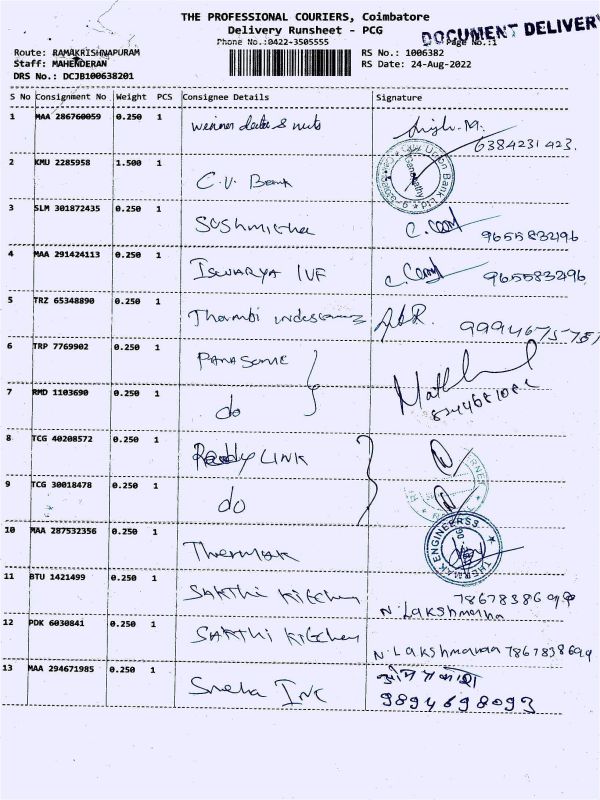 THE PROFESSIONAL COURIERS, Coimbatore
Delivery Runsheet - PCG
Phone No.:0422-3505555
DOCUMENT DELIVERY
Page No.:1
Route: RAMAKRISHNAPURAM
RS No.: 1006382
Staff: MAHENDERAN
RS Date: 24-Aug-2022
DRS No.: DCJB100638201
S No Consignment No Weight PCS Consignee Details Signature
1 MAA 286760059 0.250 1
6384231423
2 KMU 2285958 1.500 1 C.U. Bank
3 SLM 301872435 0.250 1 Sushmitha
9655832196
4 MAA 291424113 0.250 1 ISWARYA IVF
9655832196
5 TRZ 65348890 0.250 1 Thambi
6 TRP 7769902 0.250 1 PANASONIC
7 RMD 1103690 0.250 1 do
8 TCG 40208572 0.250 1 LINK
9 TCG 30018478 0.250 1 do
10 MAA 287532356 0.250 1 Thermak
THERMAK ENGINEERSS
11 BTU 1421499 0.250 1 SAKTHI Kitchen
N. Lakshmanan
12 PDK 6030841 0.250 1 SAKTHI Kitchen N. Lakshmanan 7867838699
13 MAA 294671985 0.250 1 Sneha INC
9894698093